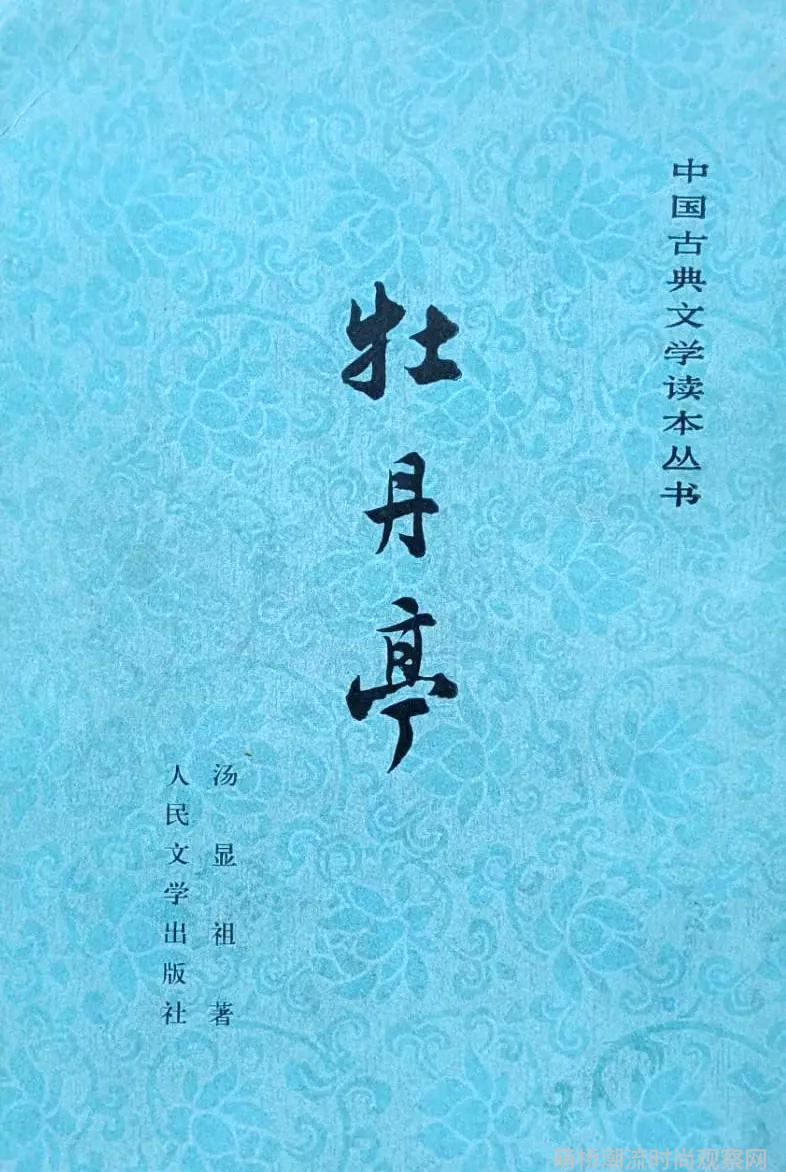 中国古典文学读本丛书
牡丹亭
汤显祖著
人民文学出版社
萌桥潮流时尚观察网